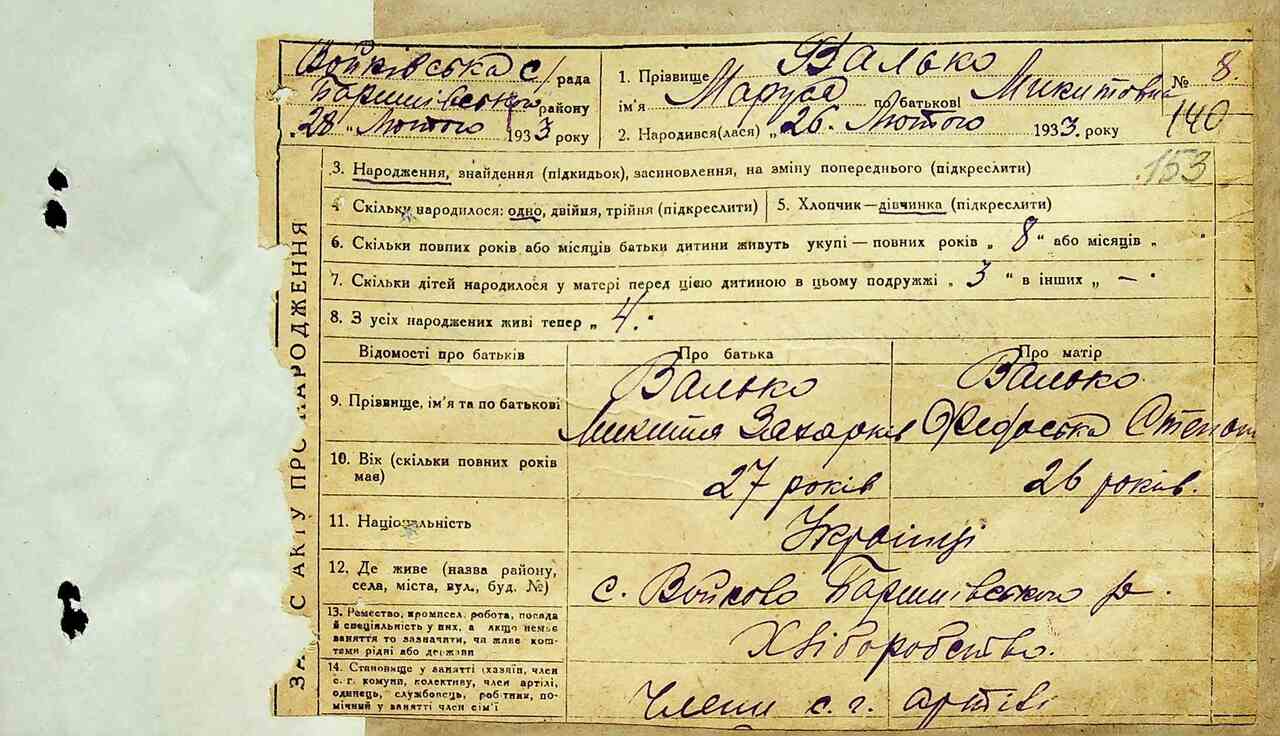 Войківська с/рада
Баришівського району
"28" Лютого 1933 року
1. Прізвище Валько
ім'я Маруся по батькові Микитовна
2. Народився(лася) "26" Лютого 1933 року
№ 8.
140
153
ЗАПИС АКТУ ПРО НАРОДЖЕННЯ
3. Народження, знайдення (підкидьок), засиновлення, на зміну попереднього (підкреслити)
4 Скільки народилося: одно, двійня, трійня (підкреслити)
5. Хлопчик—дівчинка (підкреслити)
6. Скільки повних років або місяців батьки дитини живуть укупі — повних років „ 8 " або місяців „ "
7. Скільки дітей народилося у матері перед цією дитиною в цьому подружжі „ 3 " в інших „ — "
8. З усіх народжених живі тепер „ 4. "
Відомості про батьків Про батька Про матір
9. Прізвище, ім'я та по батькові
Валько
Микита Захарків
Валько
Федоська Степан
10. Вік (скільки повних років
має)
27 років
26 років.
11. Національність
Українці
12. Де живе (назва району,
села, міста, вул., буд. №)
с. Войково Баришівського р.
13. Ремество, промисел, робота, посада
й спеціяльність у них, а якщо немає
заняття то зазначити, чи живе кош-
тами рідні або держави
Хліборобство.
14. Становище у занятті (хазяїн, член
с. г. комуни, колективу, член артілі,
одинець, службовець, робітник, по-
мічний у занятті член сім'ї
Члени с. г. артілі